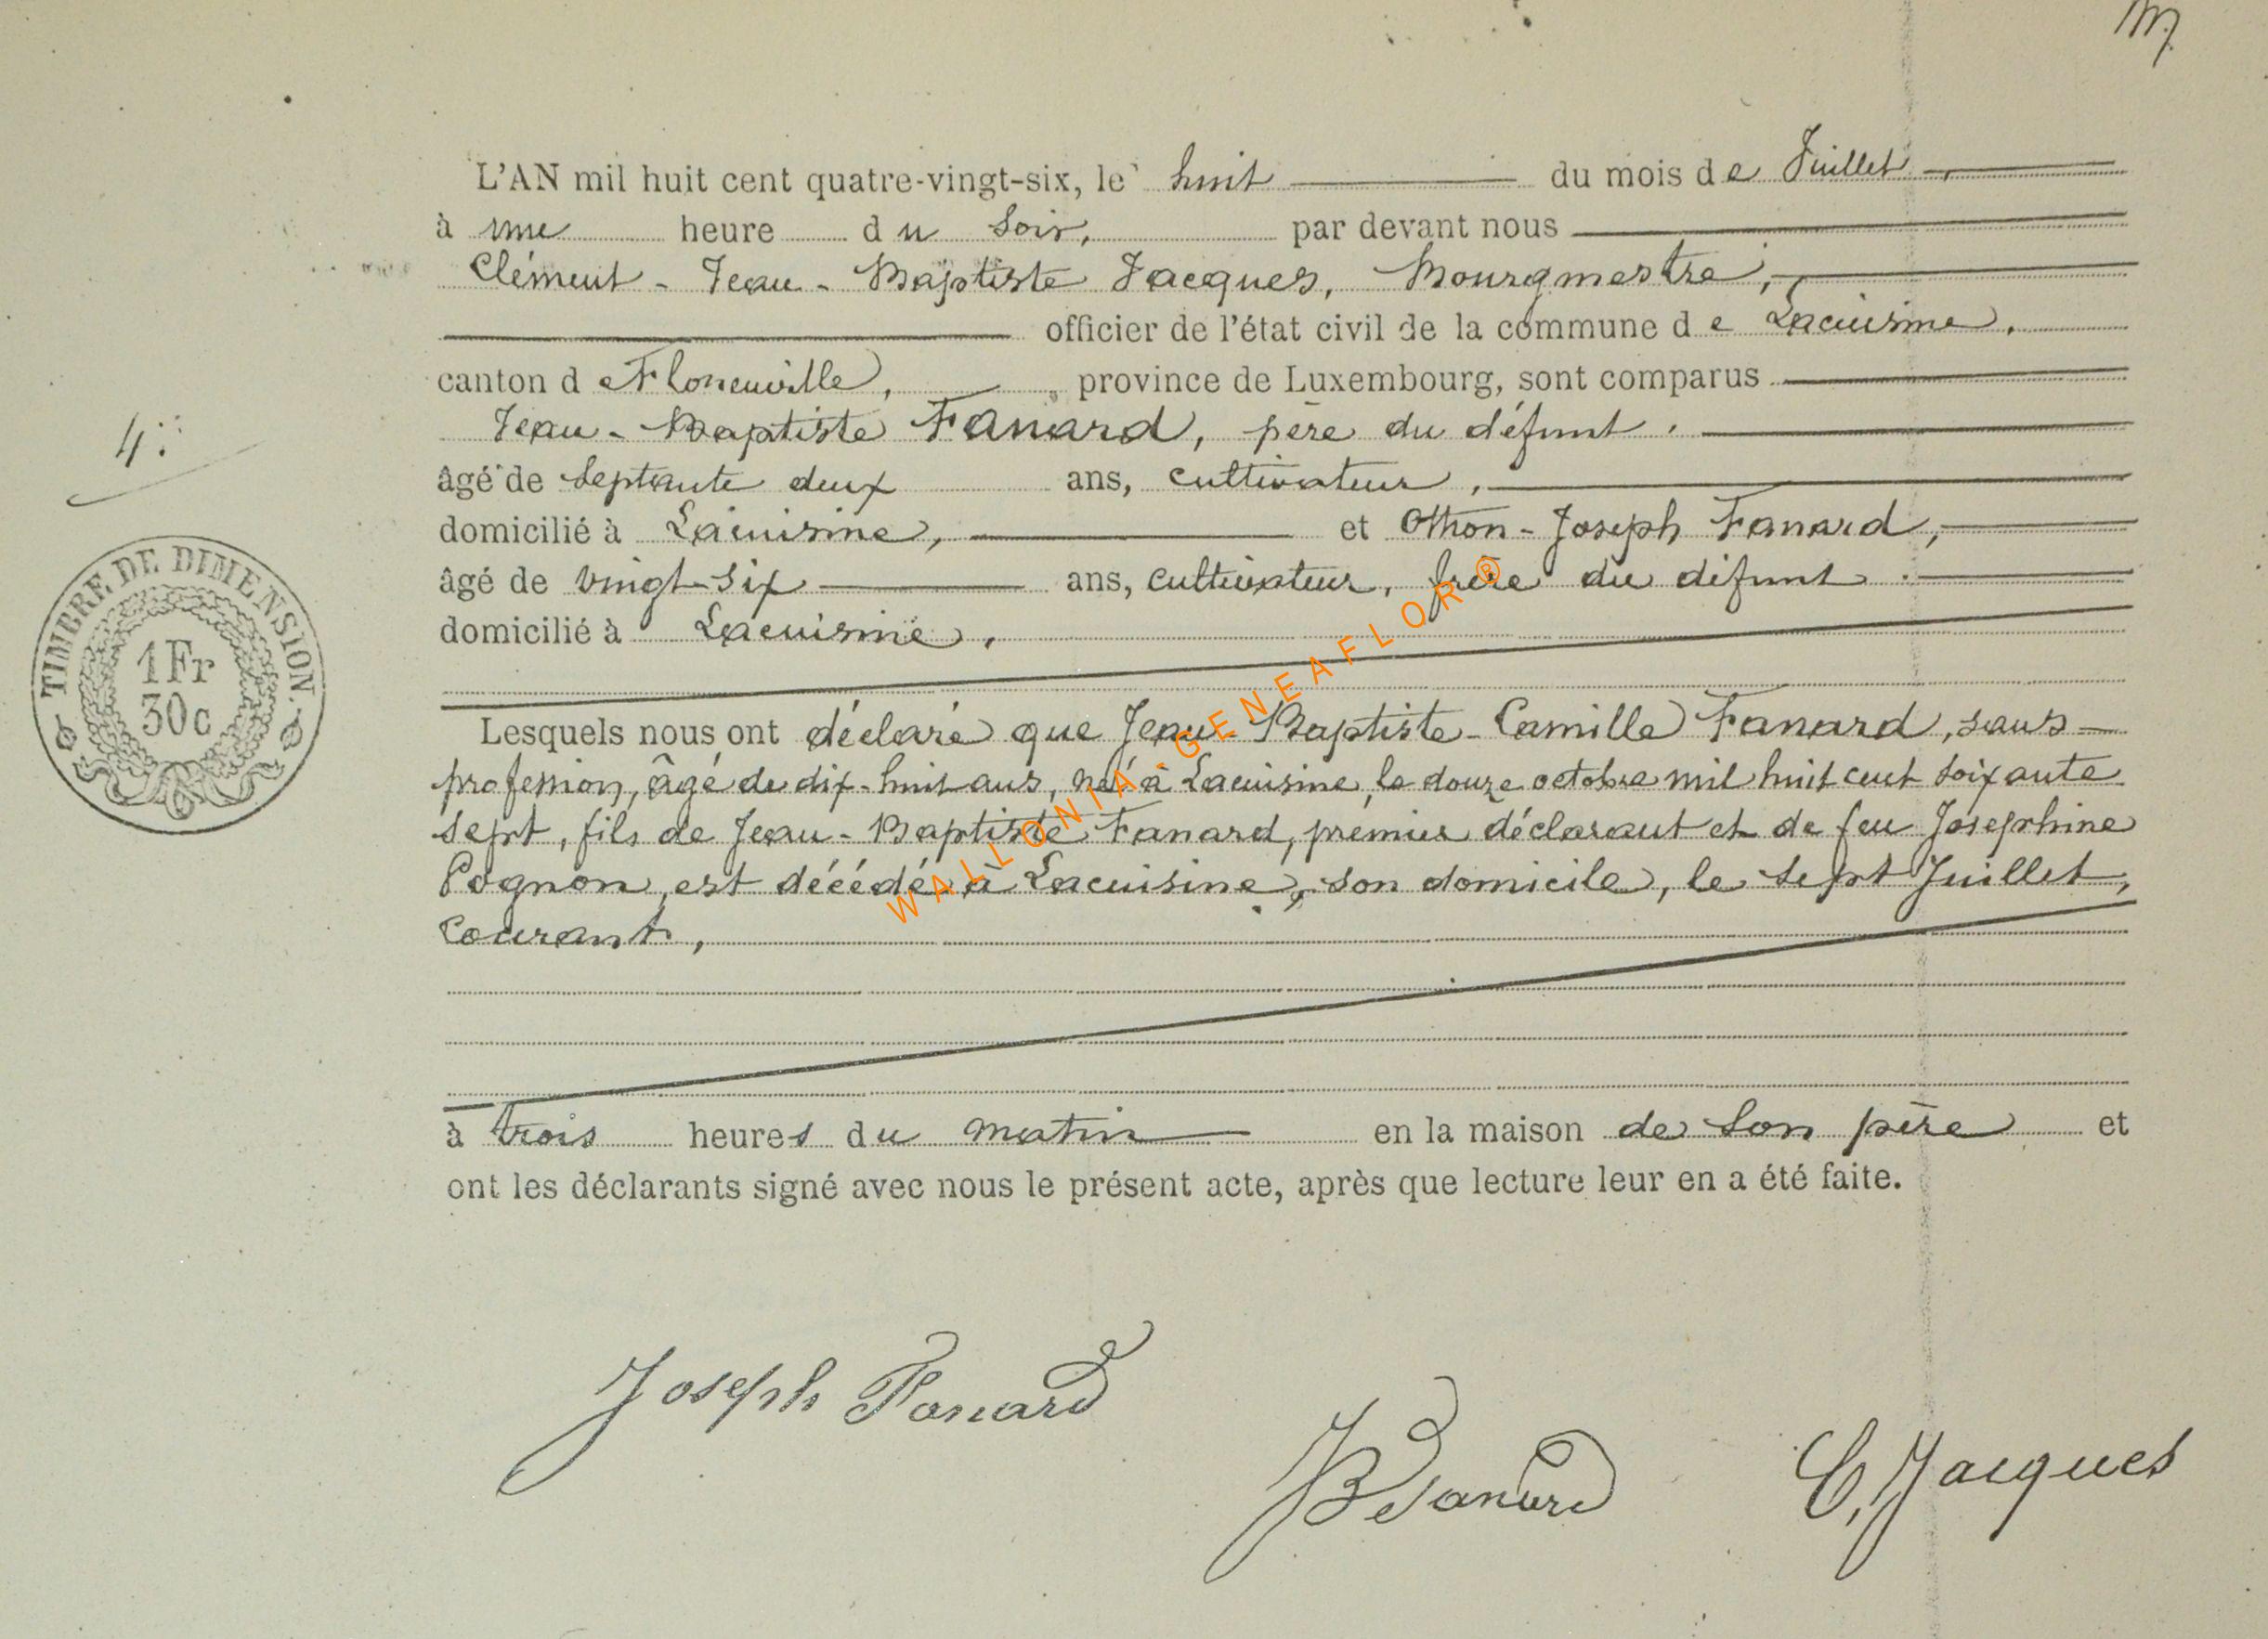 L'AN mil huit cent quatre-vingt-six, le huit du mois de Juillet
à une heure du soir, par devant nous
Clément - Jean - Baptiste Jacques, Bourgmestre,
officier de l'état civil de la commune de Lacuisine,
canton de Florenville, province de Luxembourg, sont comparus
Jean - Baptiste Fanard, père du défunt,
âgé de septante deux ans, cultivateur,
4.
domicilié à Lacuisine, et Othon - Joseph Fanard,
âgé de vingt-six ans, cultivateur, frère du défunt
domicilié à Lacuisine,
TIMBRE DE DIMENSION.
1 Fr
30 c
Lesquels nous ont déclaré que Jean - Baptiste - Camille Fanard, sans
profession, âgé de dix-huit ans, né à Lacuisine, le douze octobre mil huit cent soixante
sept, fils de Jean - Baptiste Fanard, premier déclarant et de feu Josephine
Pognon, est décédé à Lacuisine, son domicile, le sept Juillet,
courant,
à trois heures du matin en la maison de son père et
ont les déclarants signé avec nous le présent acte, après que lecture leur en a été faite.
Joseph Fanard
JB Fanard
C. Jacques
WALLONIA-GENEAFLOR®